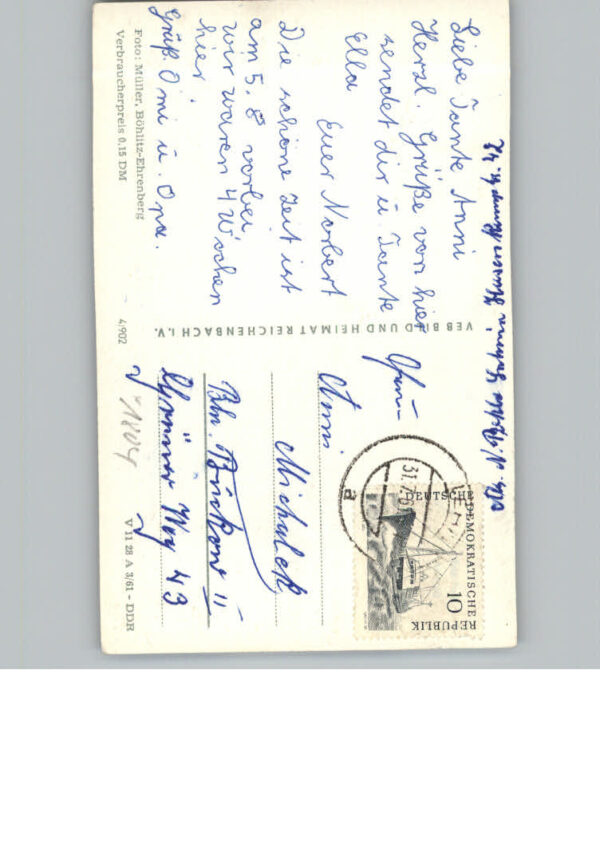 Liebe Tante Anni
Herzl. Grüße von hier
sendet dir u. Tante
Ella
Euer Norbert
Die schöne Zeit ist
am 5.8 vorbei
wir waren 4 Wochen
hier.
Grüß. Omi u. Opa.
Foto: Müller, Böhlitz-Ehrenberg
Verbraucherpreis 0,15 DM
VEB BILD UND HEIMAT REICHENBACH I. V.
4/902
DEUTSCHE DEMOKRATISCHE
REPUBLIK
10
31.7.61
a
Frau
Anni
Michalek
Bln. Buckow II
Grüner Weg 43
V 11 28 A 3/61 - DDR